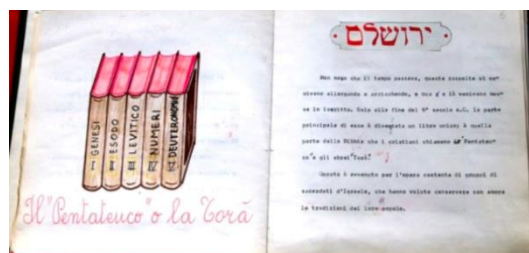 GENESI
I
ESODO
II
LEVITICO
III
NUMERI
IV
DEUTERONOMIO
V
Il "Pentateuco" o la Torā
ירושלם
Man mano che il tempo passava, queste raccolte si ve-
nivano allargando e arricchendo, e qua e là venivano mes-
se in iscritto. Solo alla fine del 5° secolo a.C. la parte
principale di esse è divenuta un libro unico: è quella
parte della Bibbia che i cristiani chiamano il Pentateu-
co e gli ebrei "Torā.
Questo è avvenuto per l'opera costante di gruppi di
sacerdoti d'Israele, che hanno voluto conservare con amore
le tradizioni del loro popolo.